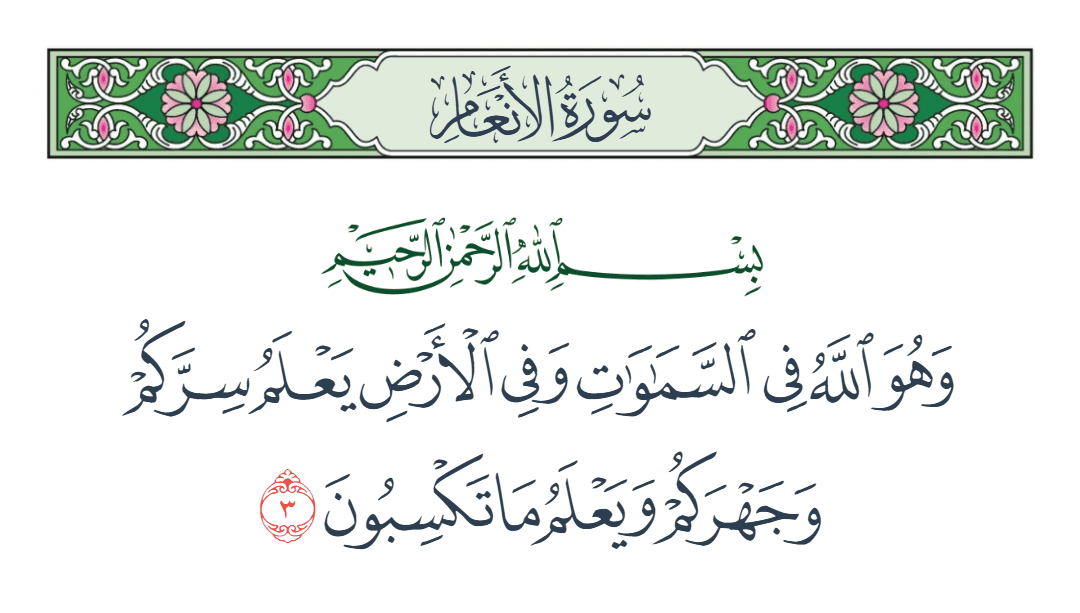 سُورَةُ الأَنْعَامِ
بِسْمِ ٱللَّهِ ٱلرَّحْمَٰنِ ٱلرَّحِيمِ
وَهُوَ ٱللَّهُ فِى ٱلسَّمَٰوَٰتِ وَفِى ٱلْأَرْضِ يَعْلَمُ سِرَّكُمْ
وَجَهْرَكُمْ وَيَعْلَمُ مَا تَكْسِبُونَ ٣